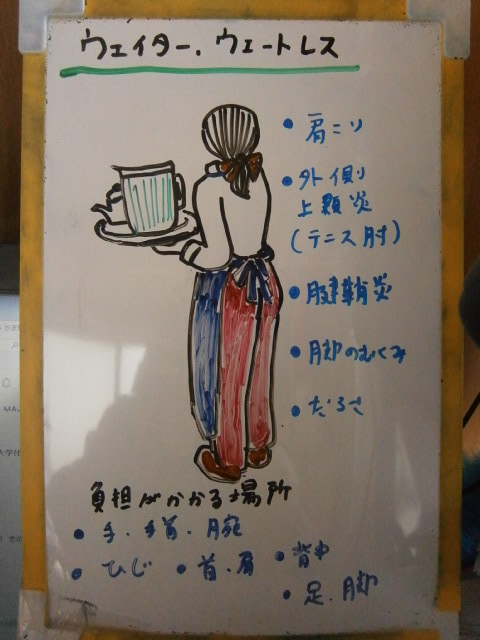 ウェイター．ウェートレス
• 肩こり
• 外側
上顆炎
(テニス肘)
• 腱鞘炎
• 脚のむくみ
• だるさ
負担がかかる場所
• 手．手首．腕
• ひじ • 首．肩 • 背中
• 足．脚